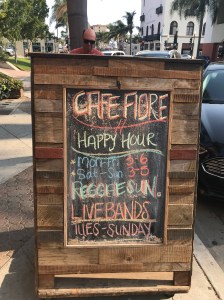 CAFE FIORE
HAPPY HOUR
Mon-Fri 3-6
Sat-Sun 3-6
REGGAE SUN.
LIVE BANDS
TUES-SUNDAY